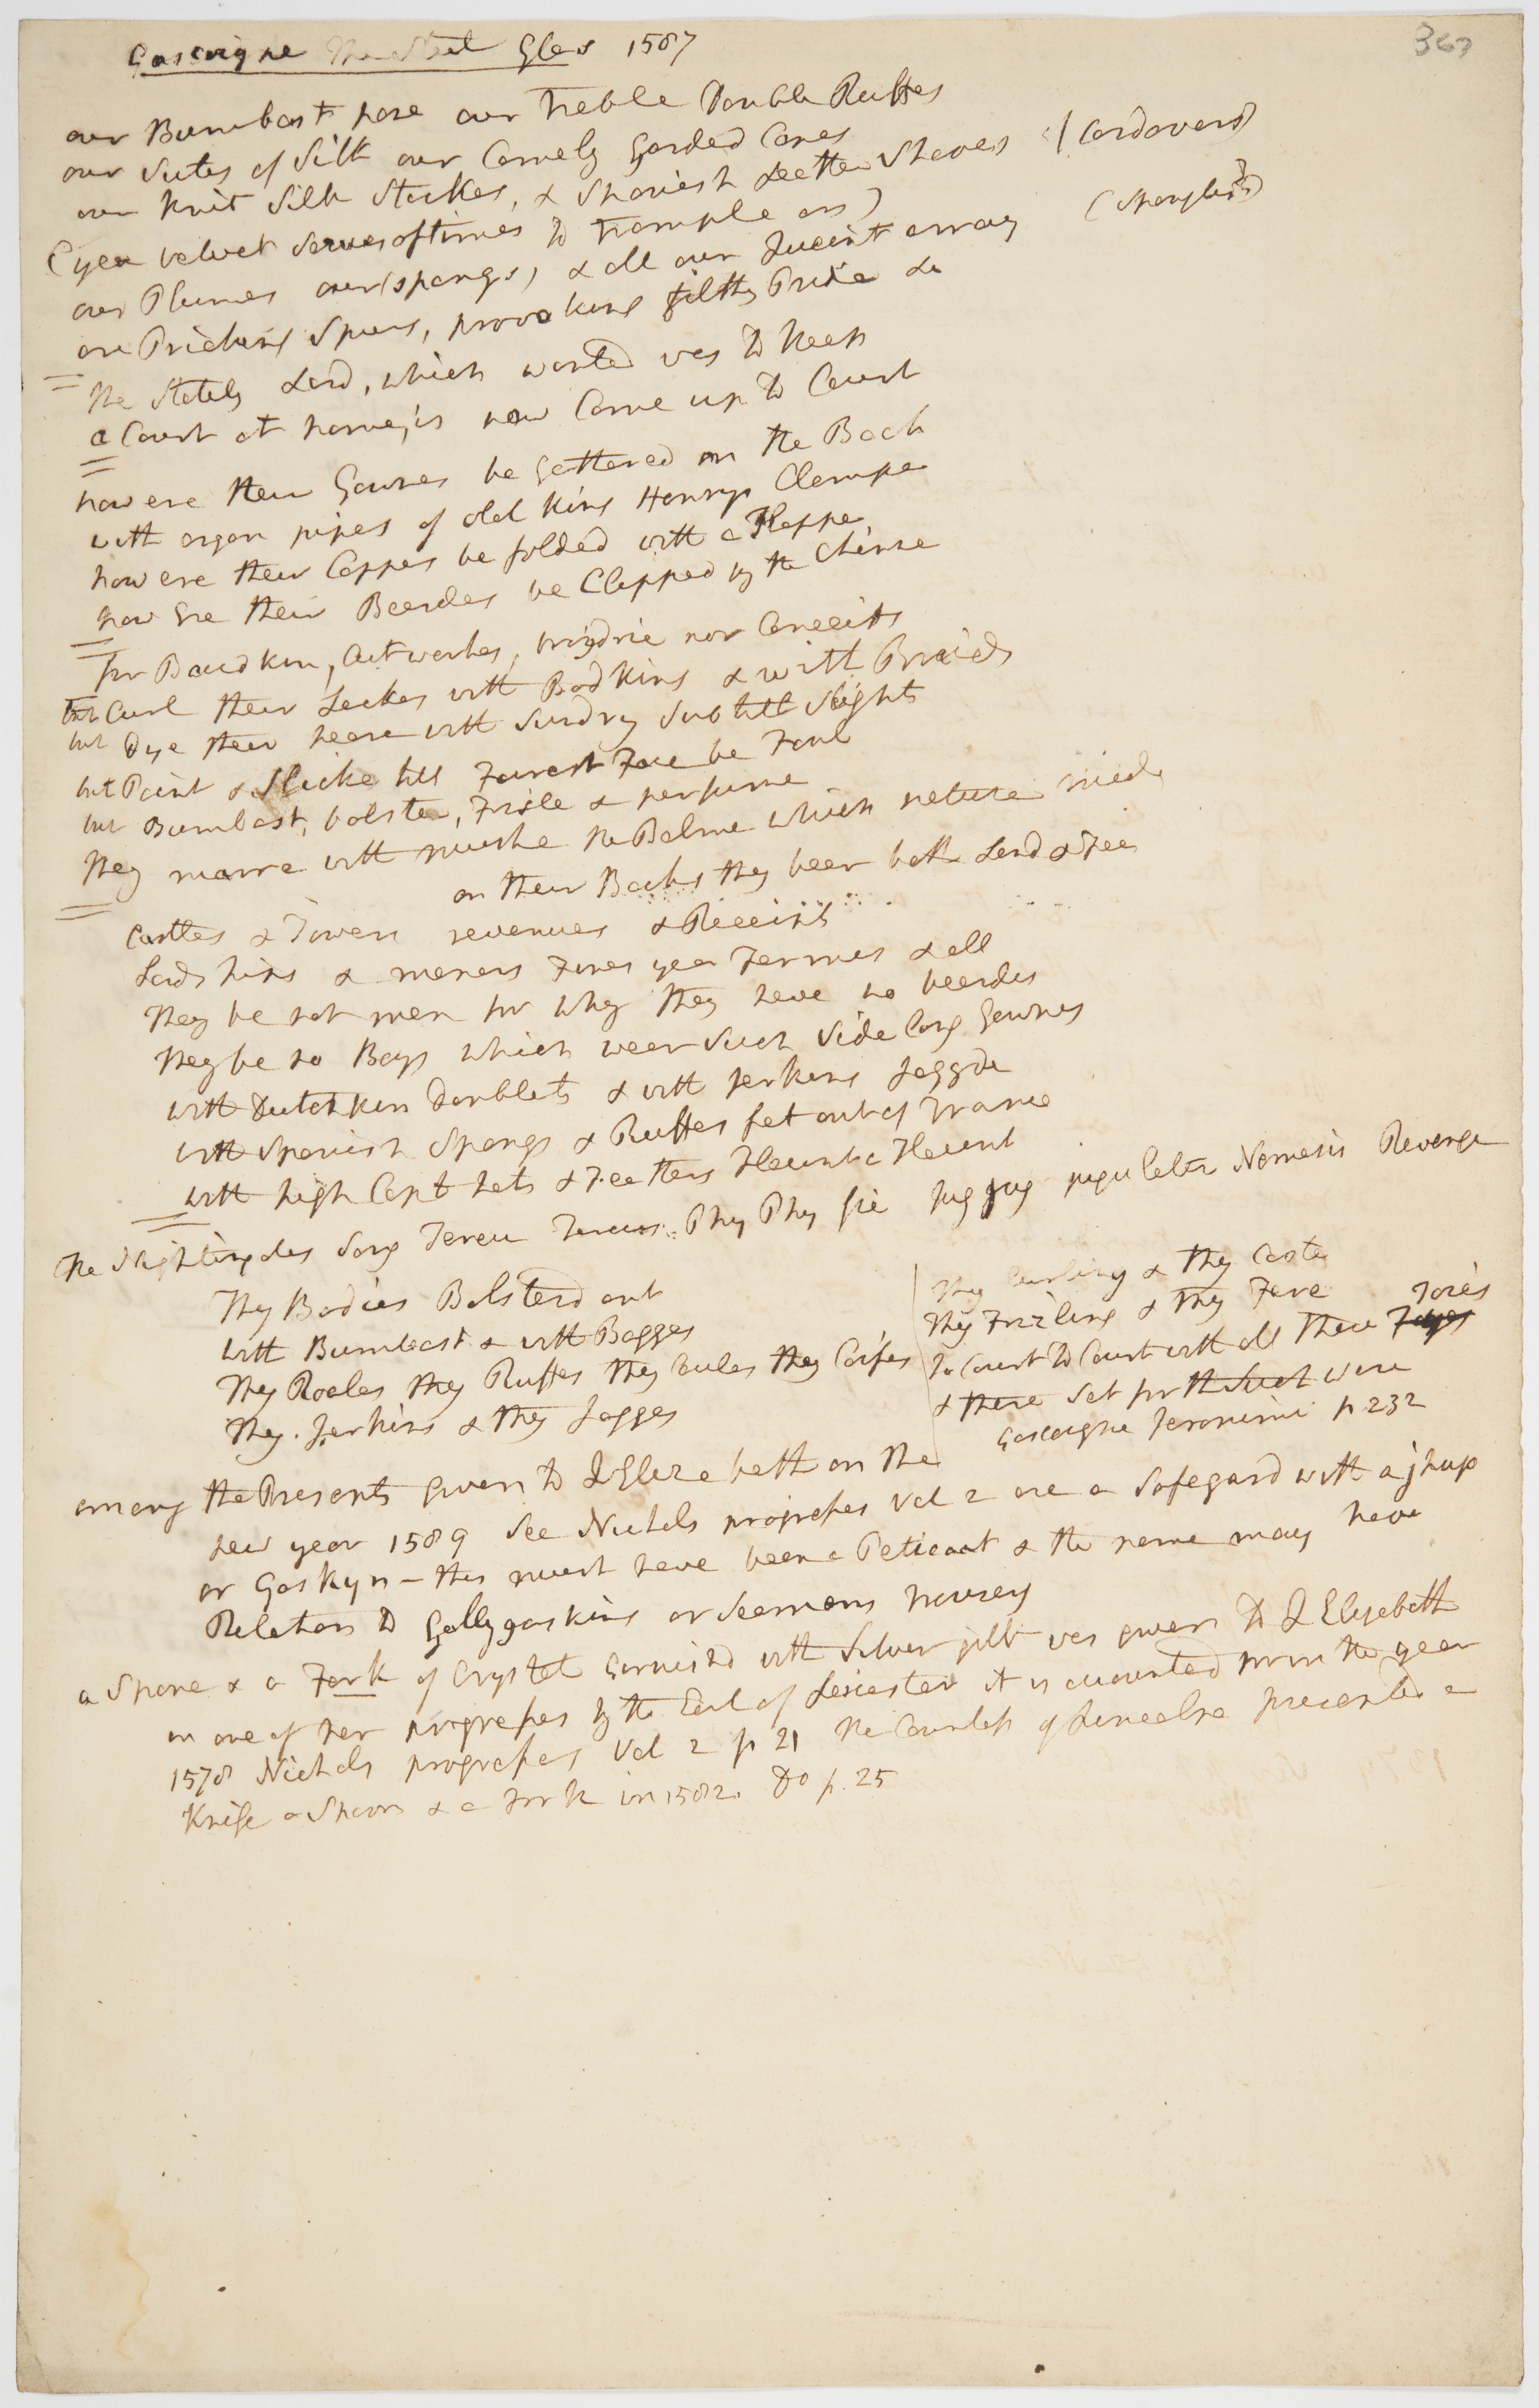 363
Gascoigne The Steel Glas 1587
our Bumbast hose our Treble Double Ruffes
our Sutes of Silk our Comely Garded Capes
our Knit Silk Stockes, & Spanish Leether Shoes (Cordovers)
(yea velvet serves oftimes to trample on)
our Plumes our (spangs) & all our Queint array (Spangles?)
are Pricking Spurs, provoking filthy Pride &c
The Stately Lord, which wonted was to keep
a Court at home, is now Come up to Court
how ere their Gownes be gathered on the Back
with organ pipes of old King Henrys Clampe
how ere their Cappes be folded with a Flappe,
how ere their Beardes be Clipped by the Chinne
for Baudkin, Cutworkes, nor Conceits
but Curl their Lockes with Bodkins & with Braids
but Dye their heare with Sundry Subtill Slights
but Paint & Slicke till Fairest Face be Foul
but Bumbast, bolster, Frisle & perfume
They marre with muske the Balme which nature made
on their Backs they bear both Land & Fee
Castles & Towers revenues & Receits
Lordships & manors Fines yea Fermes & all
They be not men for why they have no beardes
They be no Boys which wear Such Side long Gownes
with Dutchkin Doublets & with Jerkins Jaggde
with Spanish Spangs & Ruffes fet out of France
with high Copt hats & Feathers Flaunt a Flaunt
The Nightingales Song Tereu Tereus. Phy Phy fie Jug Jug jugulator Nemesis Revenge
Thy Bodies Bolsterd out
with Bumbast & with Bagges
Thy Roales thy Ruffes thy Caules thy Coifes
Thy Jerkins & thy Jagges
Thy Curling & thy Coste
Thy Frizling & thy Fare
To Court to Court with all These Toies
Toyes
& there Set forth Such ware
Gascoigne Jeronimi p 232
among the Presents given to Q Elizabeth on the
new year 1589 See Nichols progresses Vol 2 are a Safegard with a jhup
or Gaskyn – this must have been a Peticoat & the name may have
Relation to Gallygaskins or Seamens trousers
a Spone & a Fork of Crystal Garnishd with Silver gilt was given to Q Elizabeth
in one of her progresses by the Earl of Leicester it is accounted from the year
1578 Nichols progresses Vol 2 p 21 the Countess of Lincolne presented a
Knife a Spoon & a fork in 1582. Do p. 25